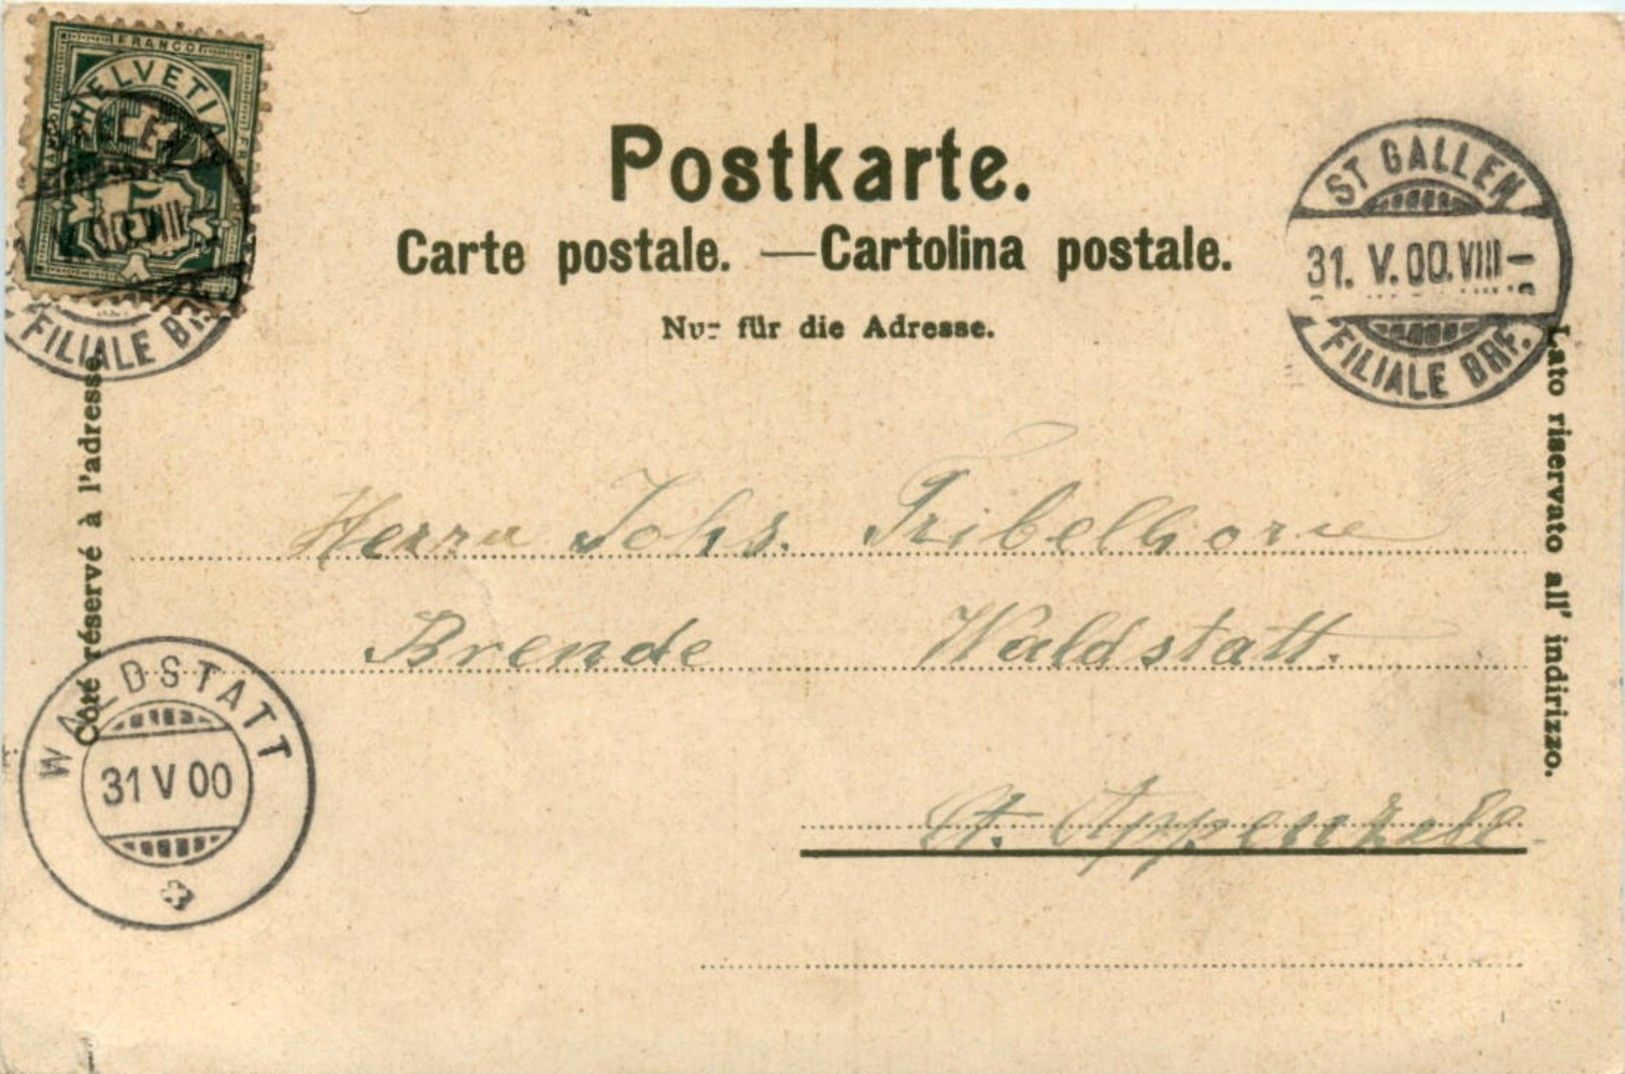 FRANCO
HELVETIA
5
FILIALE BRF.
Postkarte.
Carte postale. — Cartolina postale.
Nur für die Adresse.
ST GALLEN
31. V. 00. VIII –
FILIALE BRF.
Côté réservé à l'adresse.
Lato riservato all' indirizzo.
Herrn Johs. Tribelhorn
Brende Waldstatt.
Ct. Appenzell
WALDSTATT
31 V 00